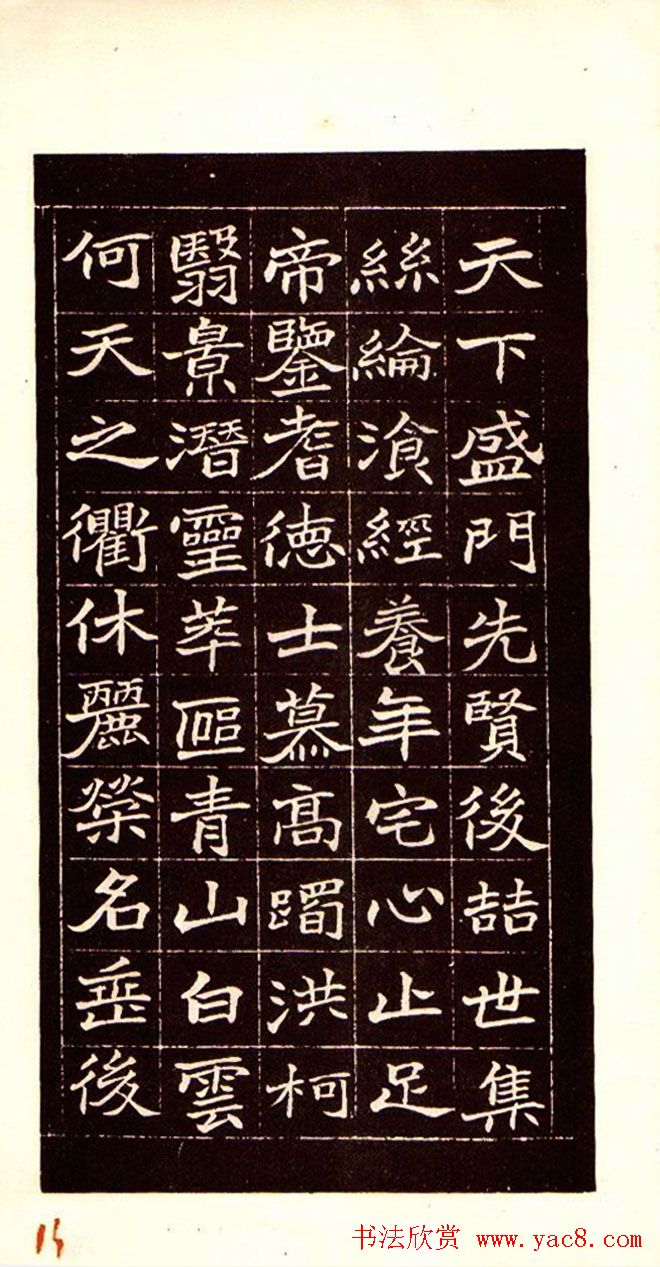 天下盛門先賢後喆世集
絲綸湌經養年宅心止足
帝鑒耆德士慕高躅洪柯
翳景潛靈萃區青山白雲
何天之衢休麗榮名垂後
15
书法欣赏 www.yac8.com